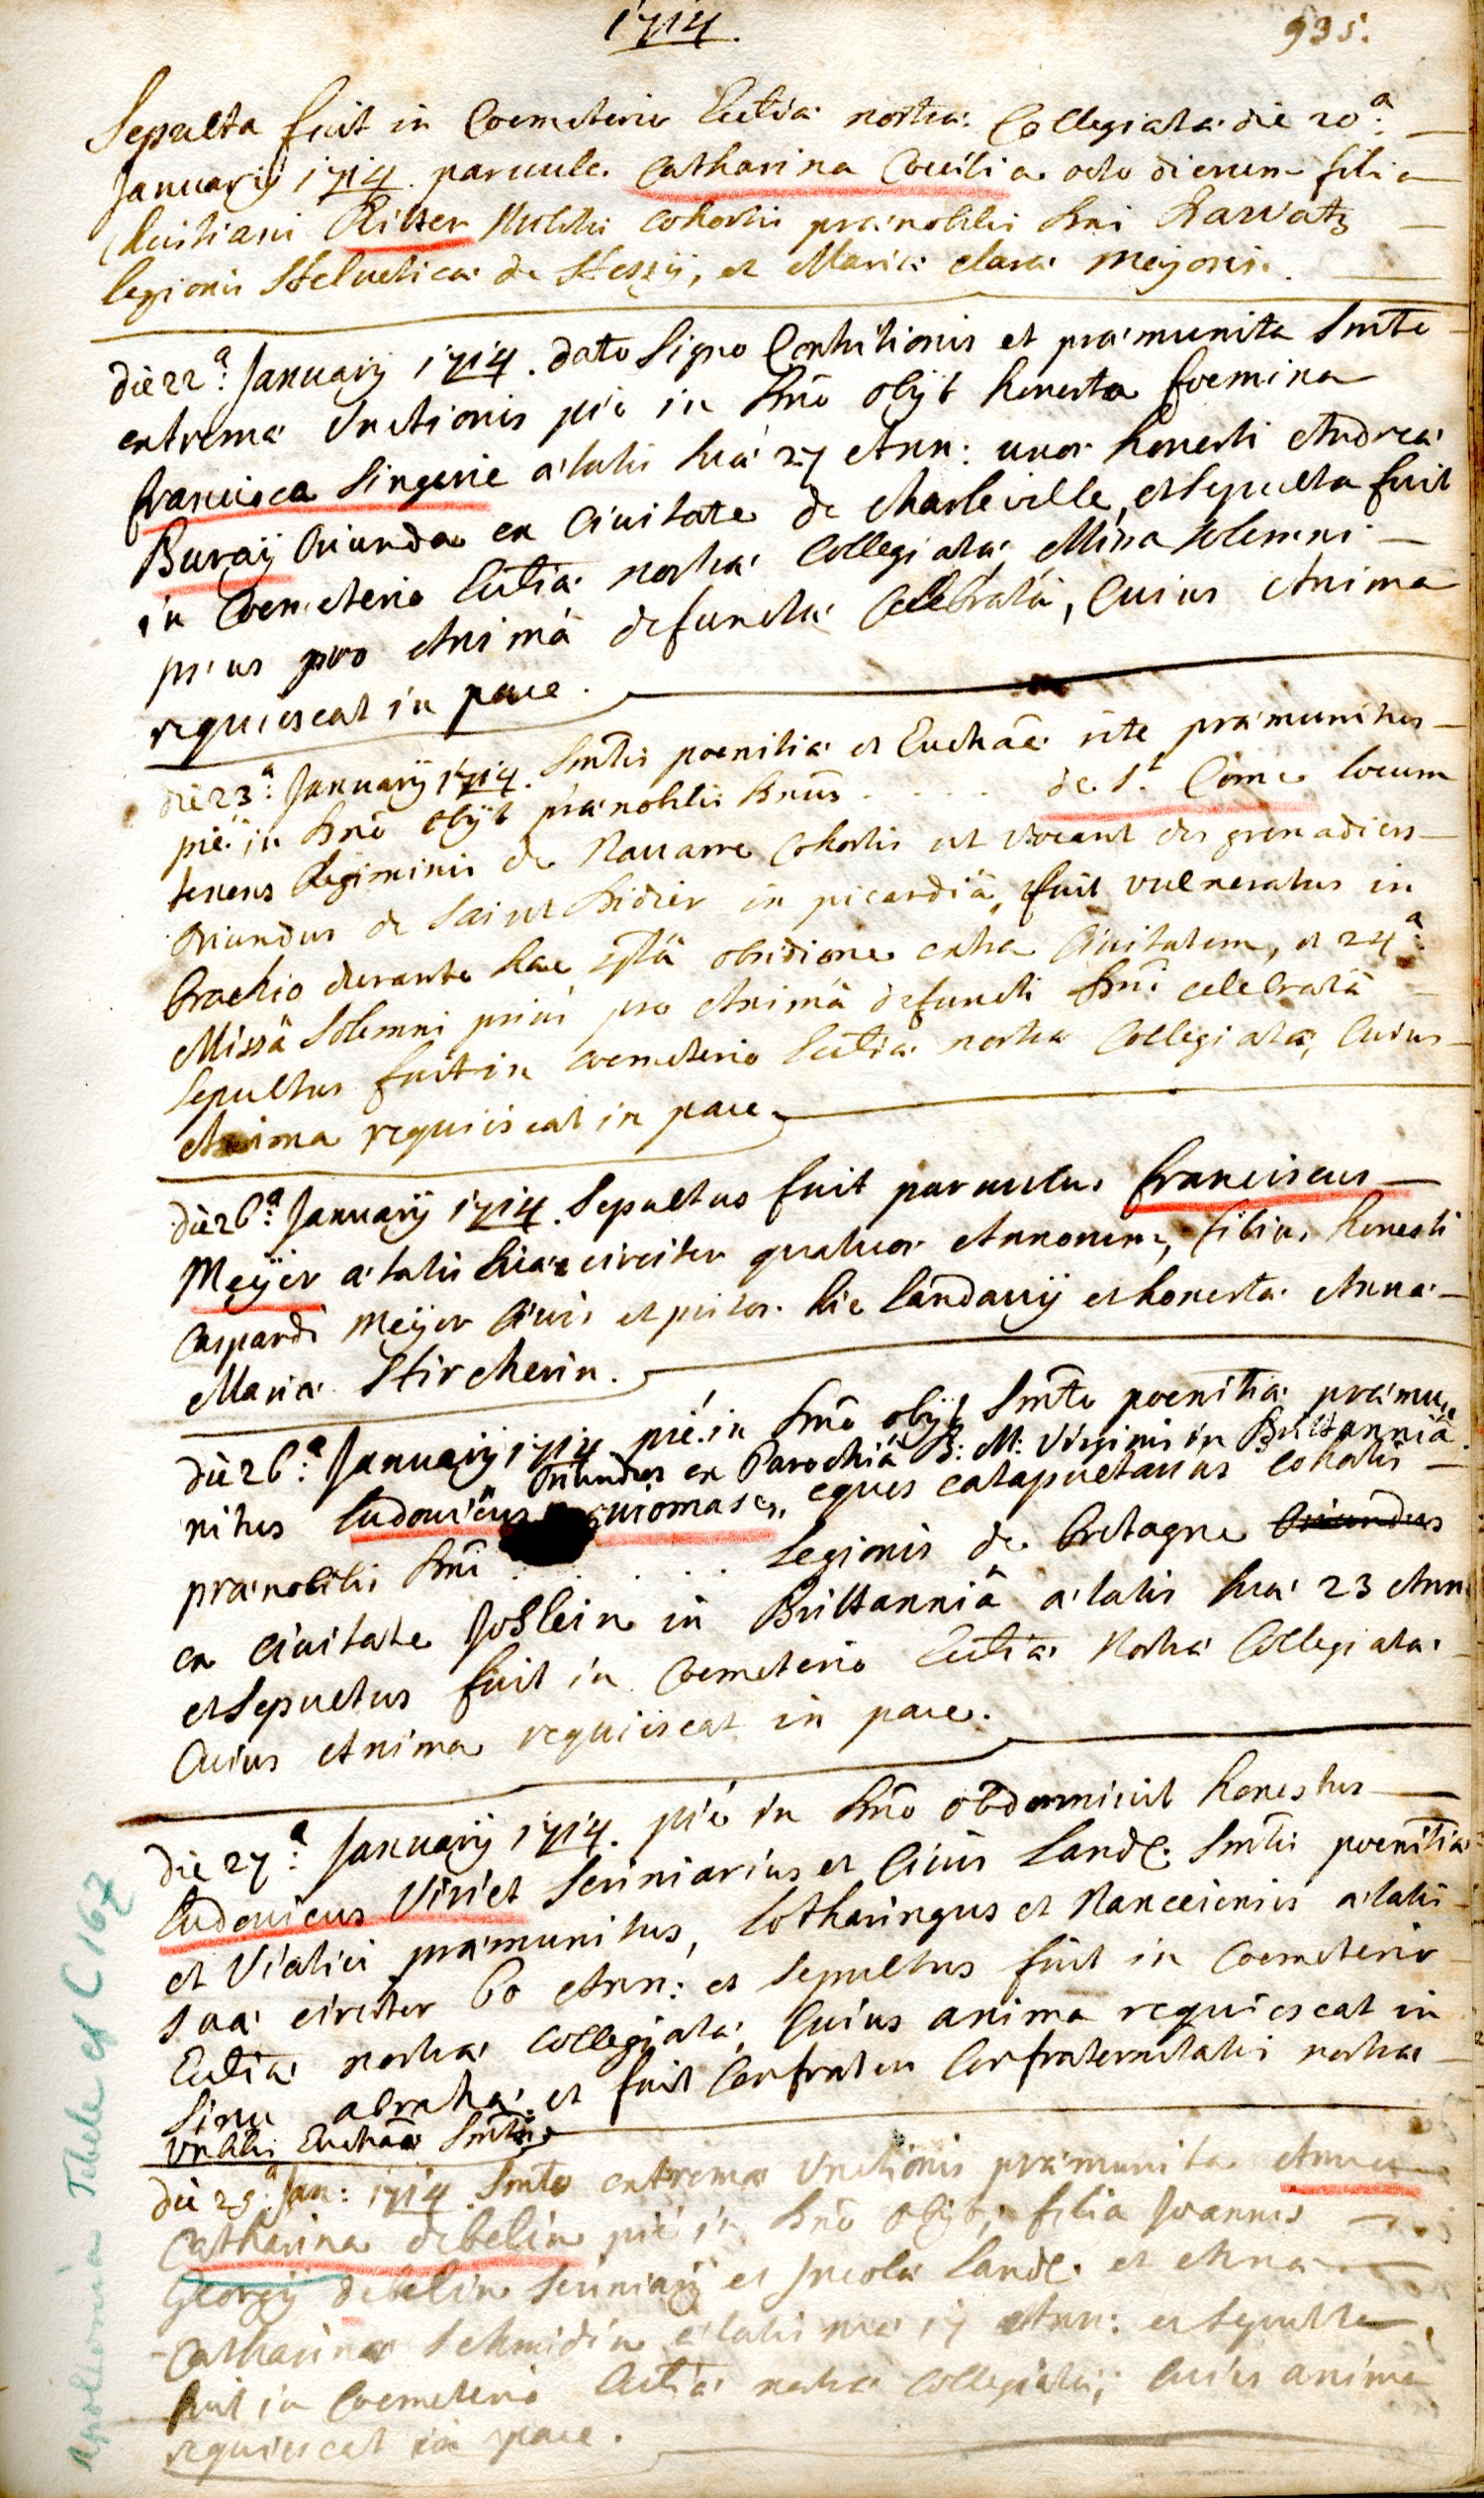 1714.
535.
Sepulta fuit in Coemeterio Ecclia nostra Collegiata die 20a:
Januarij 1714. paruula Catharina Coecilia octo dierum filia
Ritter Militis cohortis praenobilis Dni
legionis Helvetica de Hessy, et Maria clara Meyoris.
die 22a: Januarij 1714. dato Signo Contritionis et praemunita Smto
extrema Unctionis piè in Dno obijt honesta foemina
francisca Singerie aetatis sua 27 Ann: uxor honesti Andrea
Buray Oriunda ex Civitate de Charleville, et Sepulta fuit
in Coemeterio Ecclia nostra Collegiata, Missa solemni
prius pro Animâ defuncta Celebratâ, Cuius Anima
requiescat in pace.
die 23a: Januarij 1714. Smtis poenitia et Euchae rite praemunitus
piè in Dno obijt praenobilis Dnus . . . . de St. Come locum
tenens Regiminis de Nauarre Cohortis ut vocant des grenadiers
Oriundus de Saint Didier in picardiâ, fuit vulneratus in
brachio durante hac obsidione extra Civitatem, et 24a:
Missâ Solemni prius pro Animâ defuncti Dni celebratâ
Sepultus fuit in coemeterio Ecclia nostra Collegiata, Cuius
Anima requiescat in pace.
die 26a: Januarij 1714. Sepultus fuit paruulus franciscus
Meyer aetatis sua circiter quatuor Annorum, filius honesti
Caspardi Meyer Ciuis et hic Landauij et honesta Anna
Maria Hircherin.
die 26a: Januarij 1714 piè in Dno obijt Smto poenitia praemu
Oriundus ex Parochiâ B: M: Virginis in Brittanniâ
nitus Ludouicus eques catapultarius cohortis
praenobilis Dni . . . . . Legionis de Bretagne Oriundus
ex Ciuitate Joslein in Brittanniâ aetatis sua 23 Ann
et Sepultus fuit in Coemeterio Ecclia Nostra Collegiata
Cuius Anima requiescat in pace.
die 27a: Januarij 1714. piè in Dno obdormiuit honestus
Ludouicus Viriet Scriniarius et Ciuis Land: Smtis poenitia
et Viatici praemunitus, Lotharingus et Nanceiensis aetatis
sua circiter 60 Ann: et Sepultus fuit in Coemeterio
Ecclia nostra Collegiata, Cuius anima requiescat in
Sinu abraha: et fuit Confrater Confraternitatis nostra
Euchae Smti
die 29a Jan: 1714. Smto extrema Unctionis praemunita Anna
Catharina debelin piè in Dno obijt, filia Joannis
Georgij debelin Scriniarij et Incola Land: et Anna
Catharina Schmidin aetatis sua 17 Ann: et Sepulta
fuit in Coemeterio Ecclia nostra Collegiata, cuius anima
requiescat in pace.
Apollonia Tebele cf C 167